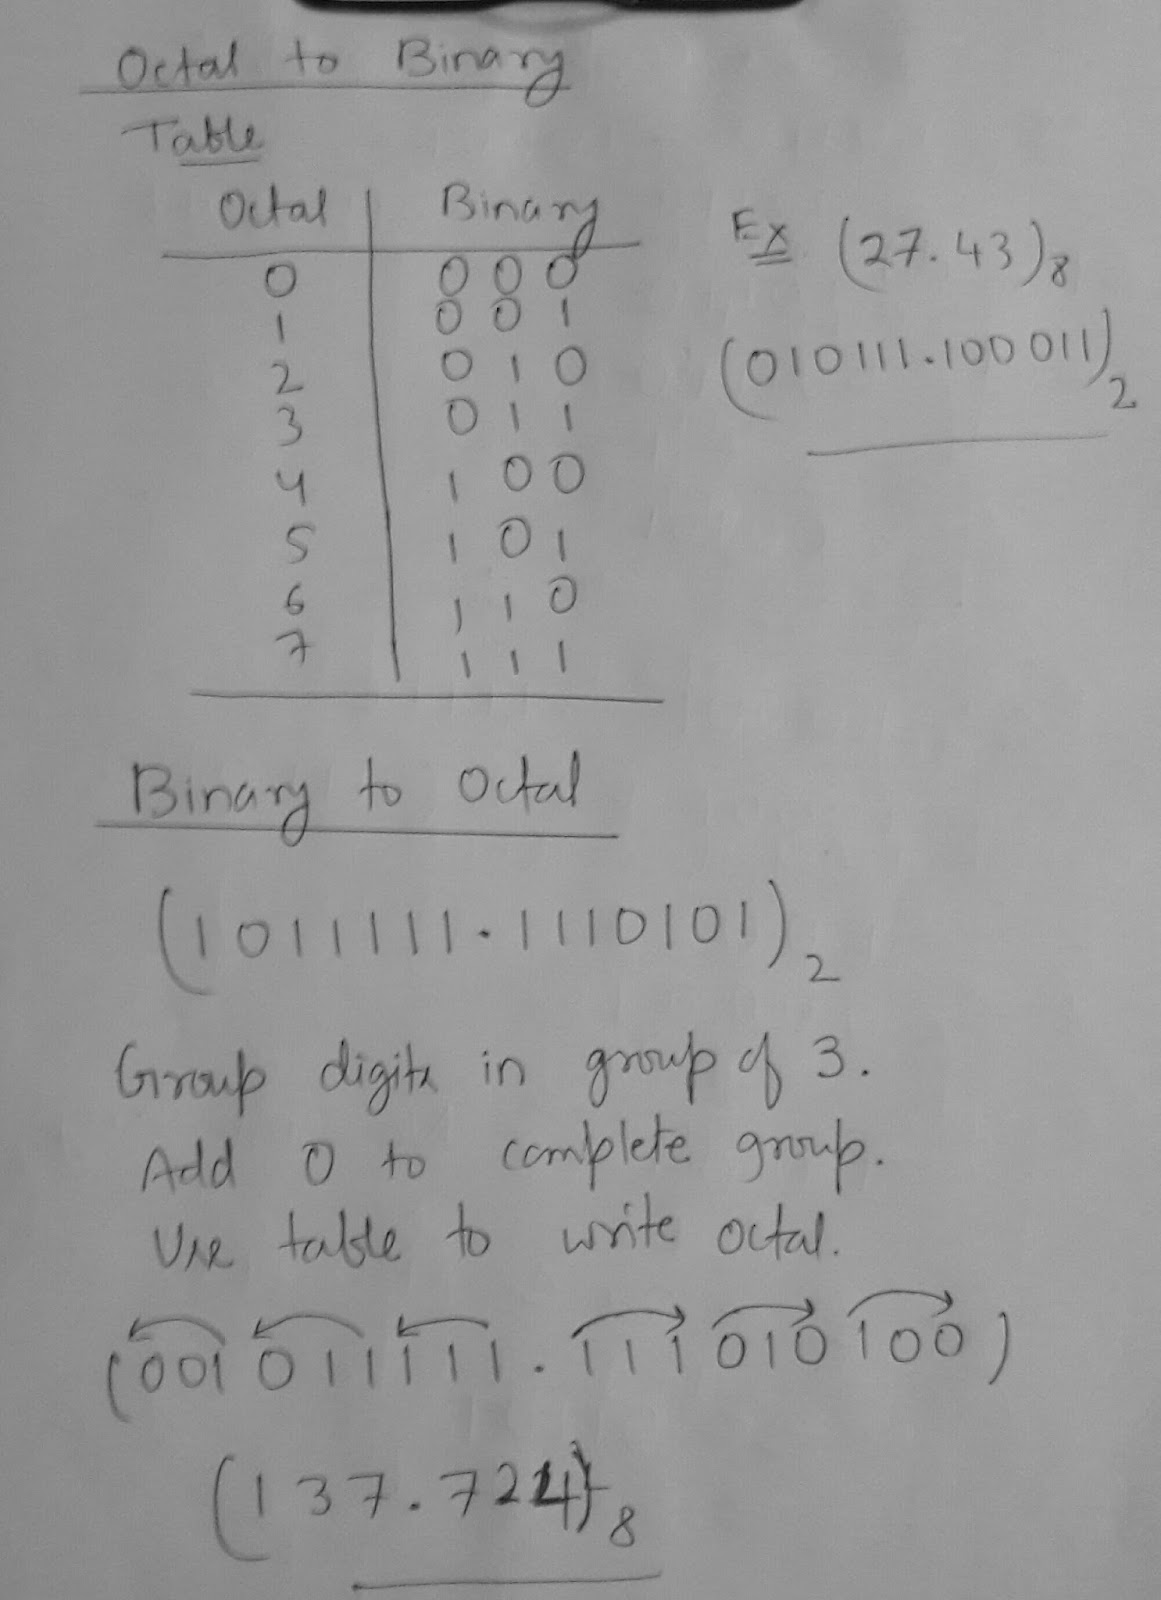 Octal to Binary
Table
Octal Binary
0 0 0 0
1 0 0 1
2 0 1 0
3 0 1 1
4 1 0 0
5 1 0 1
6 1 1 0
7 1 1 1
Ex (27.43)8
(010111.100011)2
Binary to Octal
(1011111.1110101)2
Group digits in group of 3.
Add 0 to complete group.
Use table to write octal.
(001 011 111.111 010 100)
(137.724)8